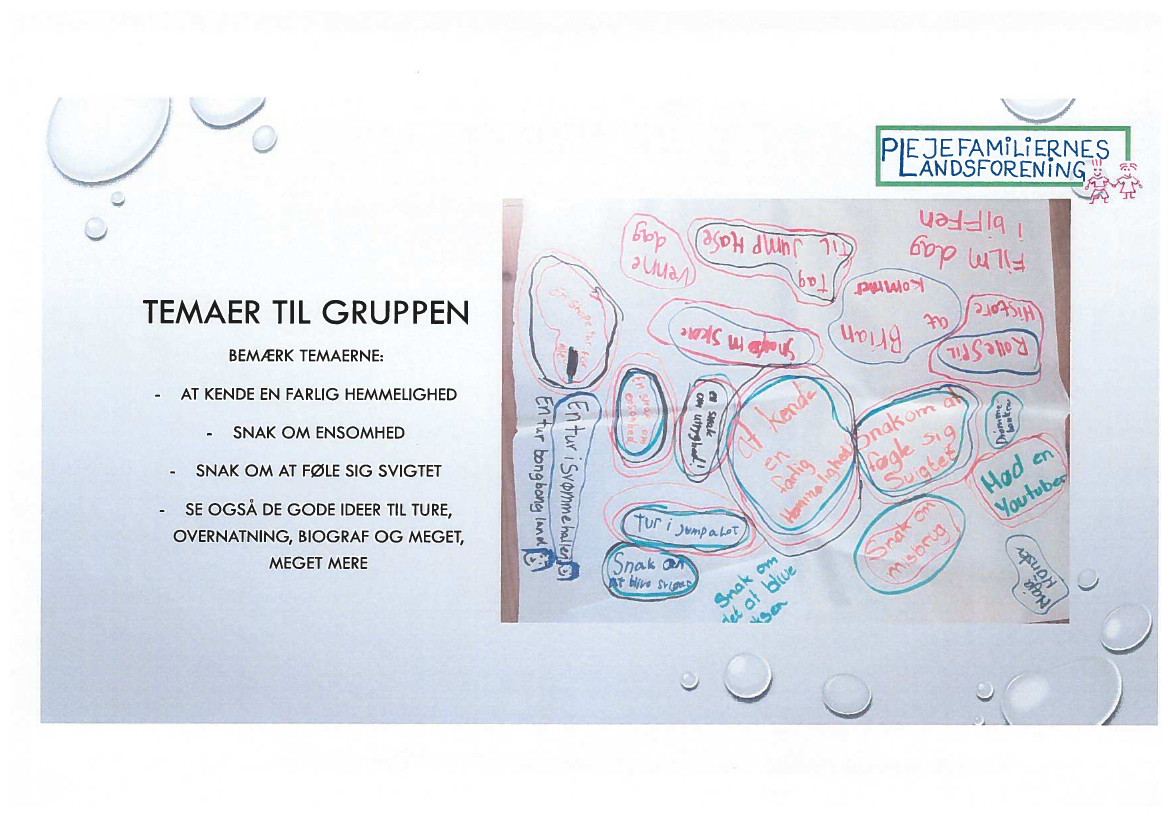 PLEJEFAMILIERNES
LANDSFORENING
TEMAER TIL GRUPPEN
BEMÆRK TEMAERNE:
- AT KENDE EN FARLIG HEMMELIGHED
- SNAK OM ENSOMHED
- SNAK OM AT FØLE SIG SVIGTET
- SE OGSÅ DE GODE IDEER TIL TURE,
OVERNATNING, BIOGRAF OG MEGET,
MEGET MERE
FILM dag
i biffen
Tag
til Jump Hase
Venne
dag
Brian
at
kommer
Histore
Rollespil
Snak om
En snak om
ensomhed
en snak
om utryghed!
at kende
en
farlig
Hemmelighed
Snak om at
føgle sig
Svigtet
Drømme-
banken
Mød en
Youtuber
En tur i Svømmehallen
En tur bongbong land
tur i Jumpalot
Snak om
at blive
Snak om
det at blive
Snak om
misbrug